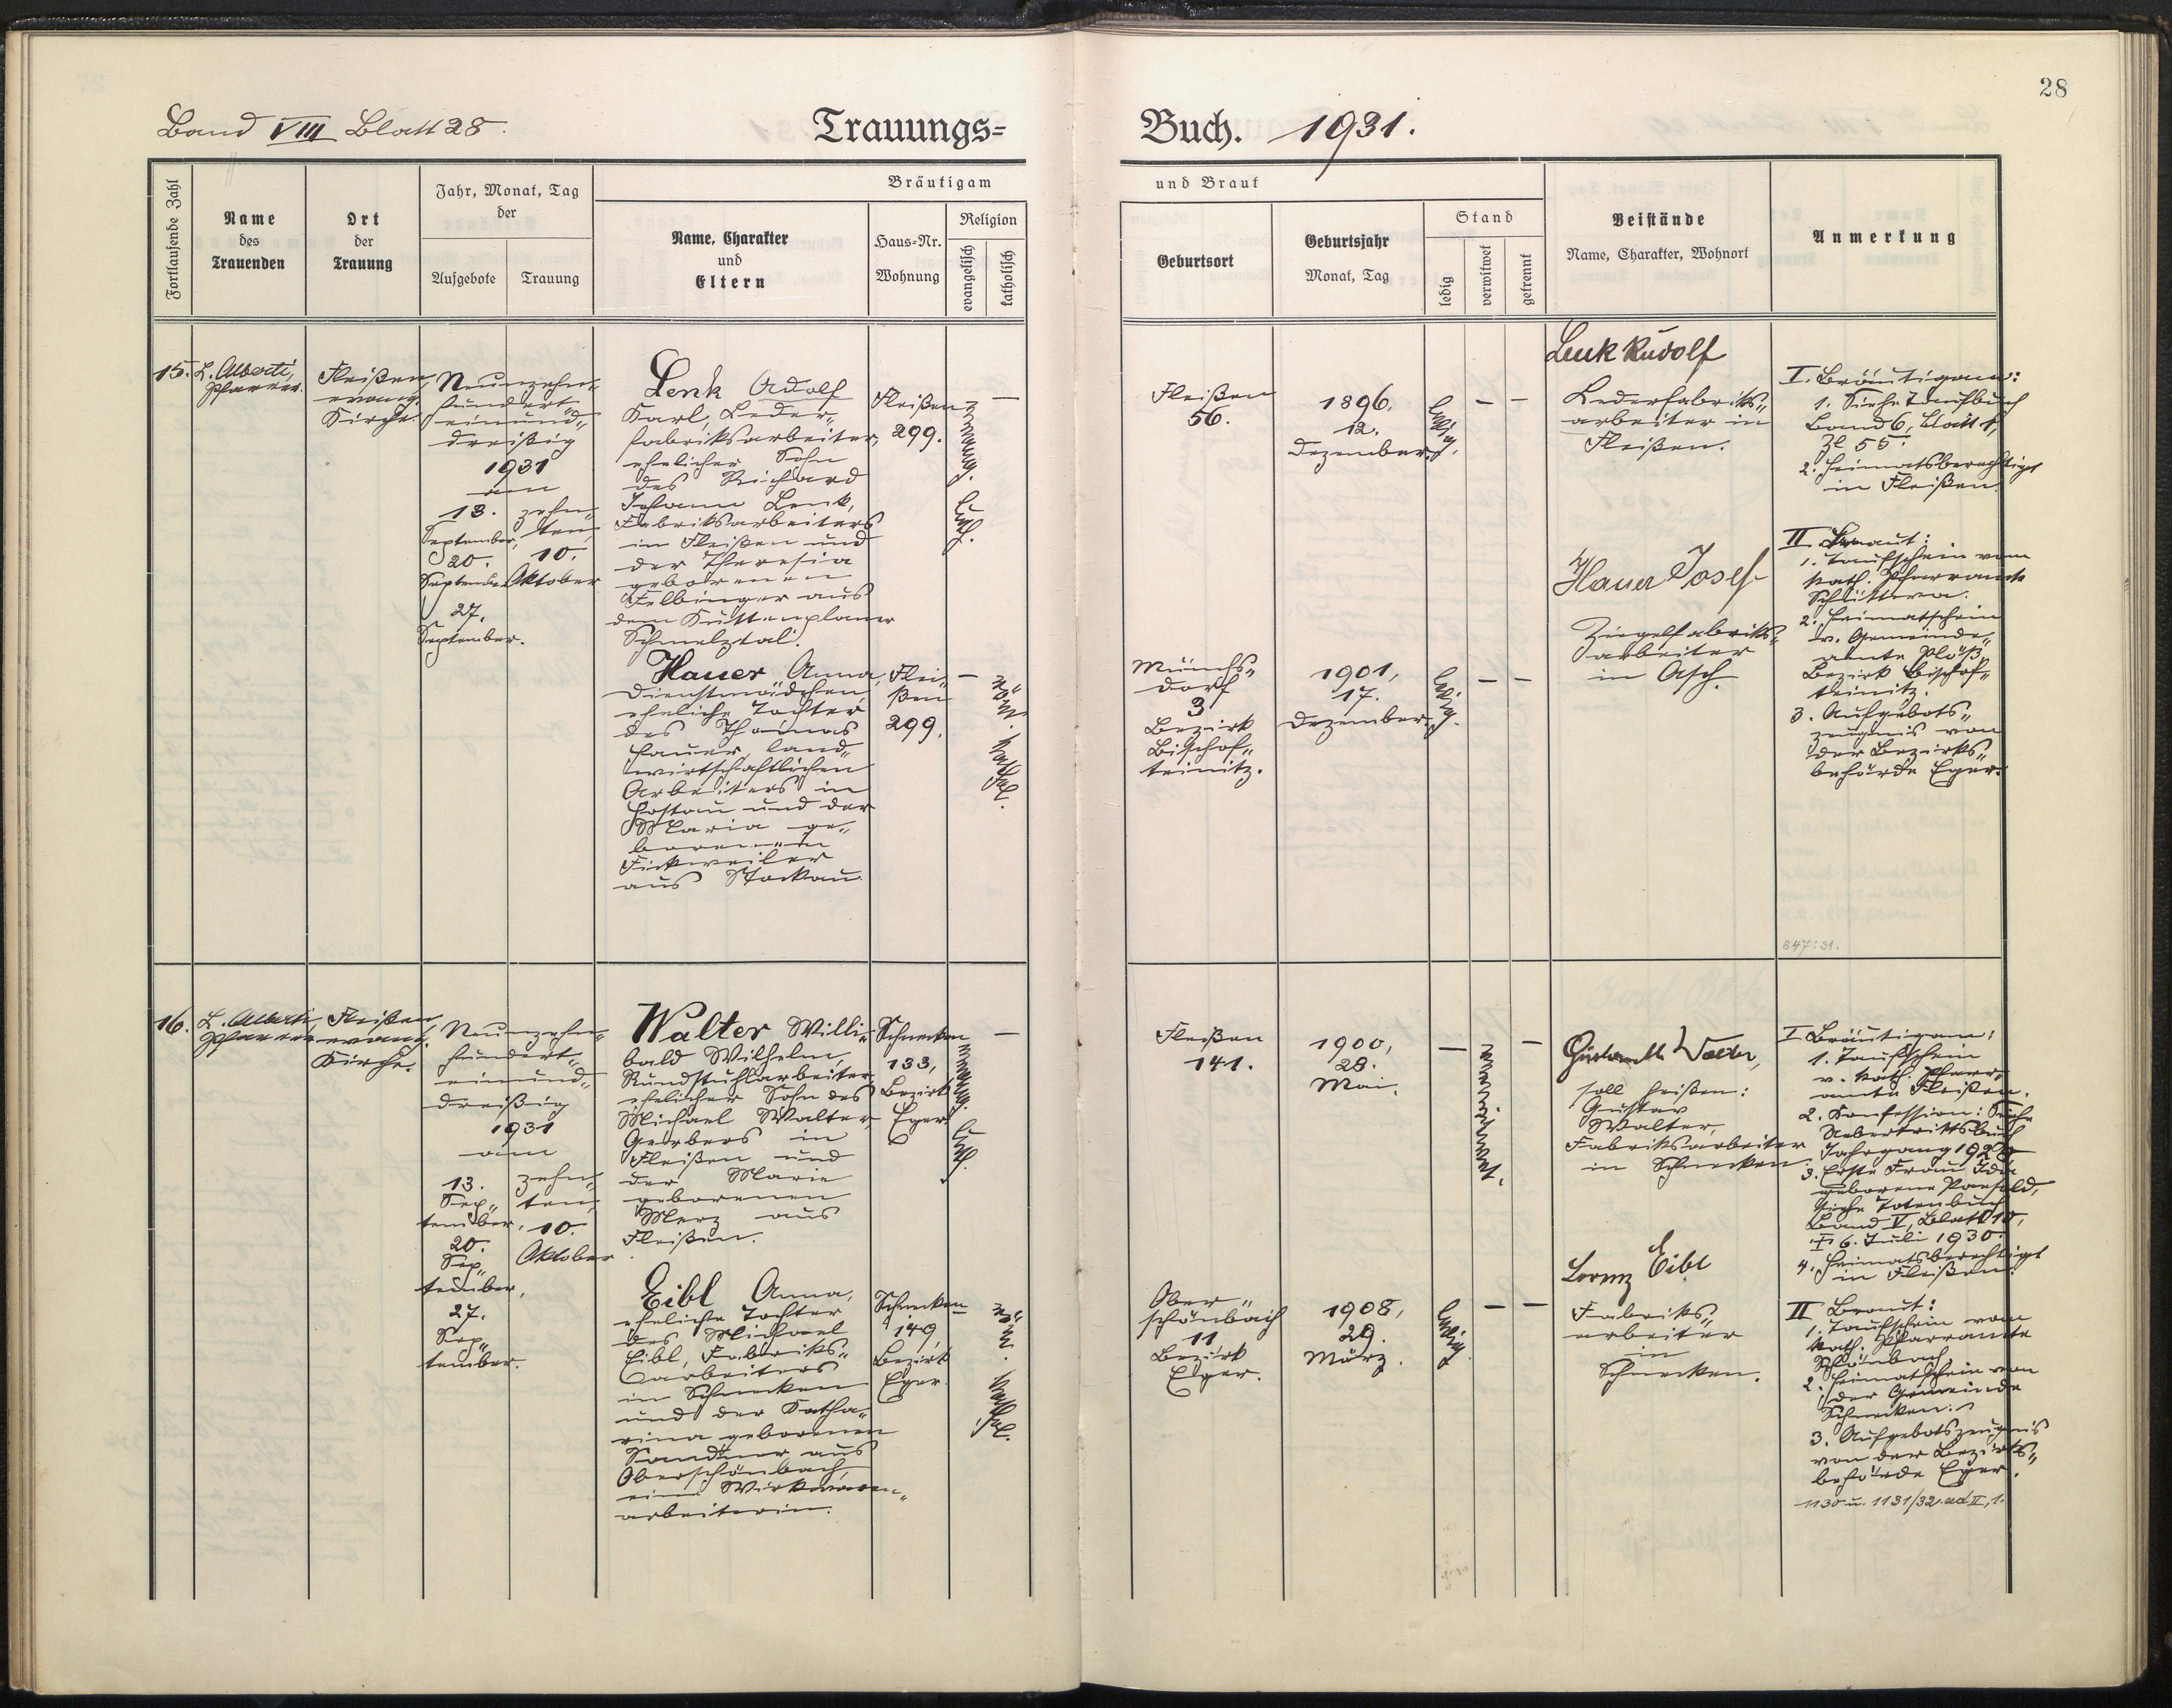 28
Band VIII Blatt 28.
Trauungs=
Buch. 1931.
Fortlaufende Zahl
Name
des
Trauenden
Ort
der
Trauung
Jahr, Monat, Tag
der
Aufgebote
Trauung
Bräutigam
Name, Charakter
und
Eltern
Haus=Nr.
Wohnung
Religion
evangelisch
katholisch
und Braut
Geburtsort
Geburtsjahr
Monat, Tag
Stand
ledig
verwitwet
getrennt
Beistände
Name, Charakter, Wohnort
Anmerkung
15.
L. Alberti,
Pfarrer.
Fleißen,
evang.
Kirche.
Neunzehn„
hundert„
einund„
dreißig
1931
am
13.
September,
20.
September
27.
September.
zehn„
ten,
10.
Oktober
Lenk Adolf
Karl, Leder„
fabriksarbeiter,
ehelicher Sohn
des Richard
Johann Lenk,
Fabriksarbeiters
in Fleißen und
der Theresia
geborenen
Felbinger aus
dem Kuttenplaner
Schmelztal.
Fleißen
299.
evang.
luth.
—
Fleißen
56.
1896.
12.
Dezember.
ledig.
— —
Lenk Rudolf
Lederfabriks„
arbeiter in
Fleißen.
I. Bräutigam:
1. Siehe Taufbuch
Band 6, Blatt 1,
Zl 55.
2. Heimatsberechtigt
in Fleißen.
Hauer Anna,
Dienstmädchen,
eheliche Tochter
des Thomas
Hauer, land„
wirtschaftlichen
Arbeiters in
Hostau und der
Maria ge„
borenen
Fickweiler
aus Stockau.
Flei„
ßen
299.
—
röm. kathol.
Münchs„
dorf
3
Bezirk
Bischof„
teinitz.
1901,
17.
Dezember.
ledig.
— —
Hauer Josef
Ziegelfabriks„
arbeiter
in Asch.
II Braut:
1. Taufschein vom
kath. Pfarramte
Schüttwa.
2. Heimatschein
v. Gemeinde„
amte Plöß,
Bezirk Bischof„
teinitz.
3. Aufgebots„
zeugnis von
der Bezirks„
behörde Eger.
847:31.
16.
L. Alberti
Pfarrer
Fleißen
evang.
Kirche.
Neunzehn„
hundert„
einund„
dreißig
1931
am
13.
Sep„
tember,
20.
Sep„
tember,
27.
Sep„
tember.
zehn„
ten,
10.
Oktober.
Walter Willi„
bald Wilhelm,
Rundstuhlarbeiter,
ehelicher Sohn des
Michael Walter,
Gerbers in
Fleißen und
der Marie
geborenen
Merz aus
Fleißen.
Schnecken
133,
Bezirk
Eger
evang.
luth.
—
Fleißen
141.
1900,
28.
Mai.
—
verwitwet.
—
Walter,
soll heißen:
Gustav
Walter,
Fabriksarbeiter
in Schnecken.
I Bräutigam:
1. Taufschein
v. kath. Pfarr„
amte Fleißen.
2. Konfession: Siehe
Uebertrittsbuch
Jahrgang
3. Erste Frau Ida
geborene
siehe Totenbuch
Band V, Blatt 10,
† 6. Juli 1930.
4. Heimatsberechtigt
in Fleißen.
Eibl Anna,
eheliche Tochter
des Michael
Eibl, Fabriks„
arbeiters
in Schnecken
und der Katha„
rina geborenen
Sandner aus
Oberschönbach,
eine Wirkwaren„
arbeiterin.
Schnecken
149,
Bezirk
Eger.
—
röm. kathol.
Ober„
schönbach
11
Bezirk
Eger.
1908,
29.
März.
ledig
— —
Lorenz Eibl
Fabriks„
arbeiter
in
Schnecken.
II Braut:
1. Taufschein vom
kath. Pfarramte
Schönbach
2. Heimatschein von
der Gemeinde
Schnecken.
3. Aufgebotszeugnis
von der Bezirks„
behörde Eger.
1130 u. 1131/32. ad II, 1.